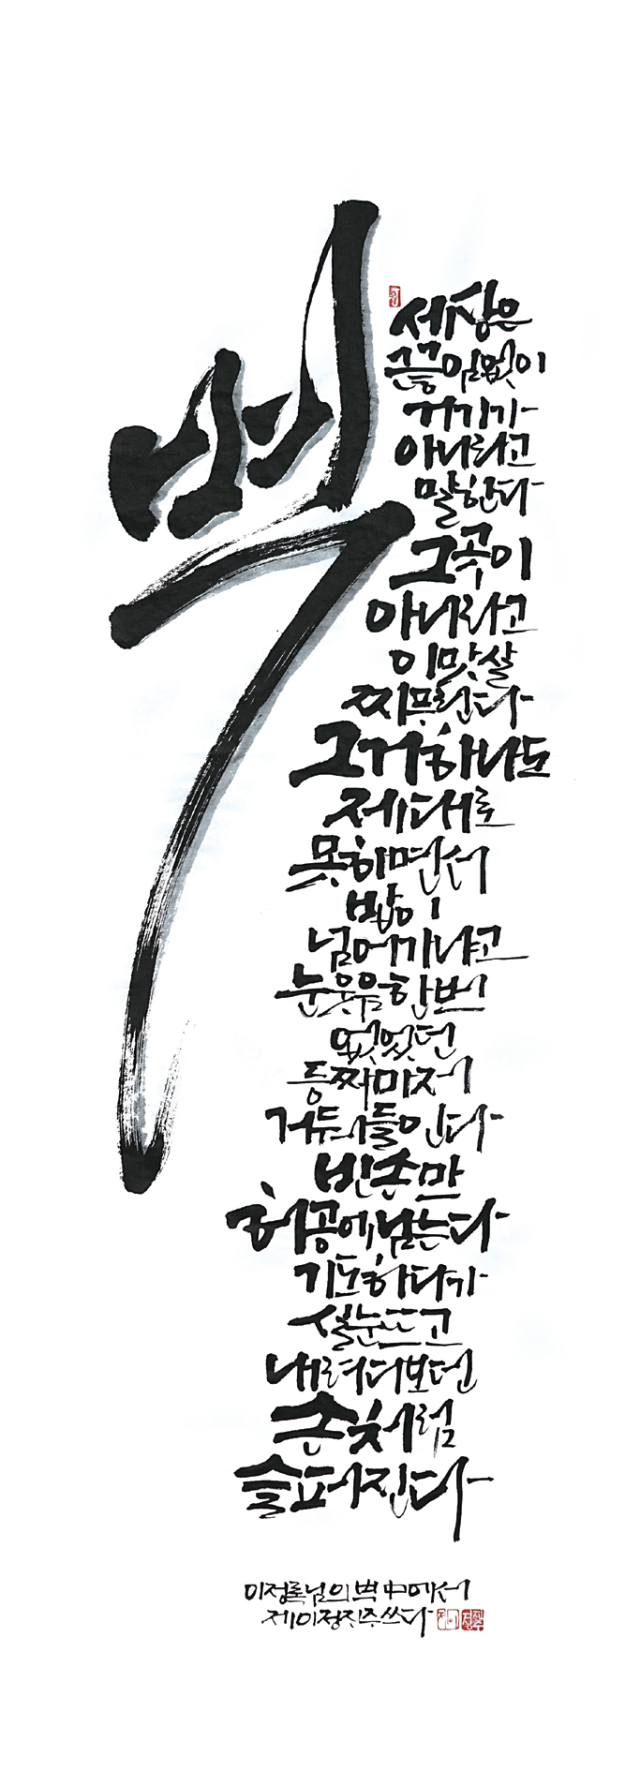 벽
세상은
끊임없이
거기가
아니라고
말한다
그곳이
아니라고
이맛살
찌푸린다
그거 하나도
제대로
못하면서
밥이
넘어가냐고
눈웃음 한번
없었던
등짝마저
거듭들인다
빈손만
허공에 넘는다
기도하다가
실눈 뜨고
내려다보던
손처럼
슬퍼진다
이정록님의 벽 中에서
제이 정진주 쓰다